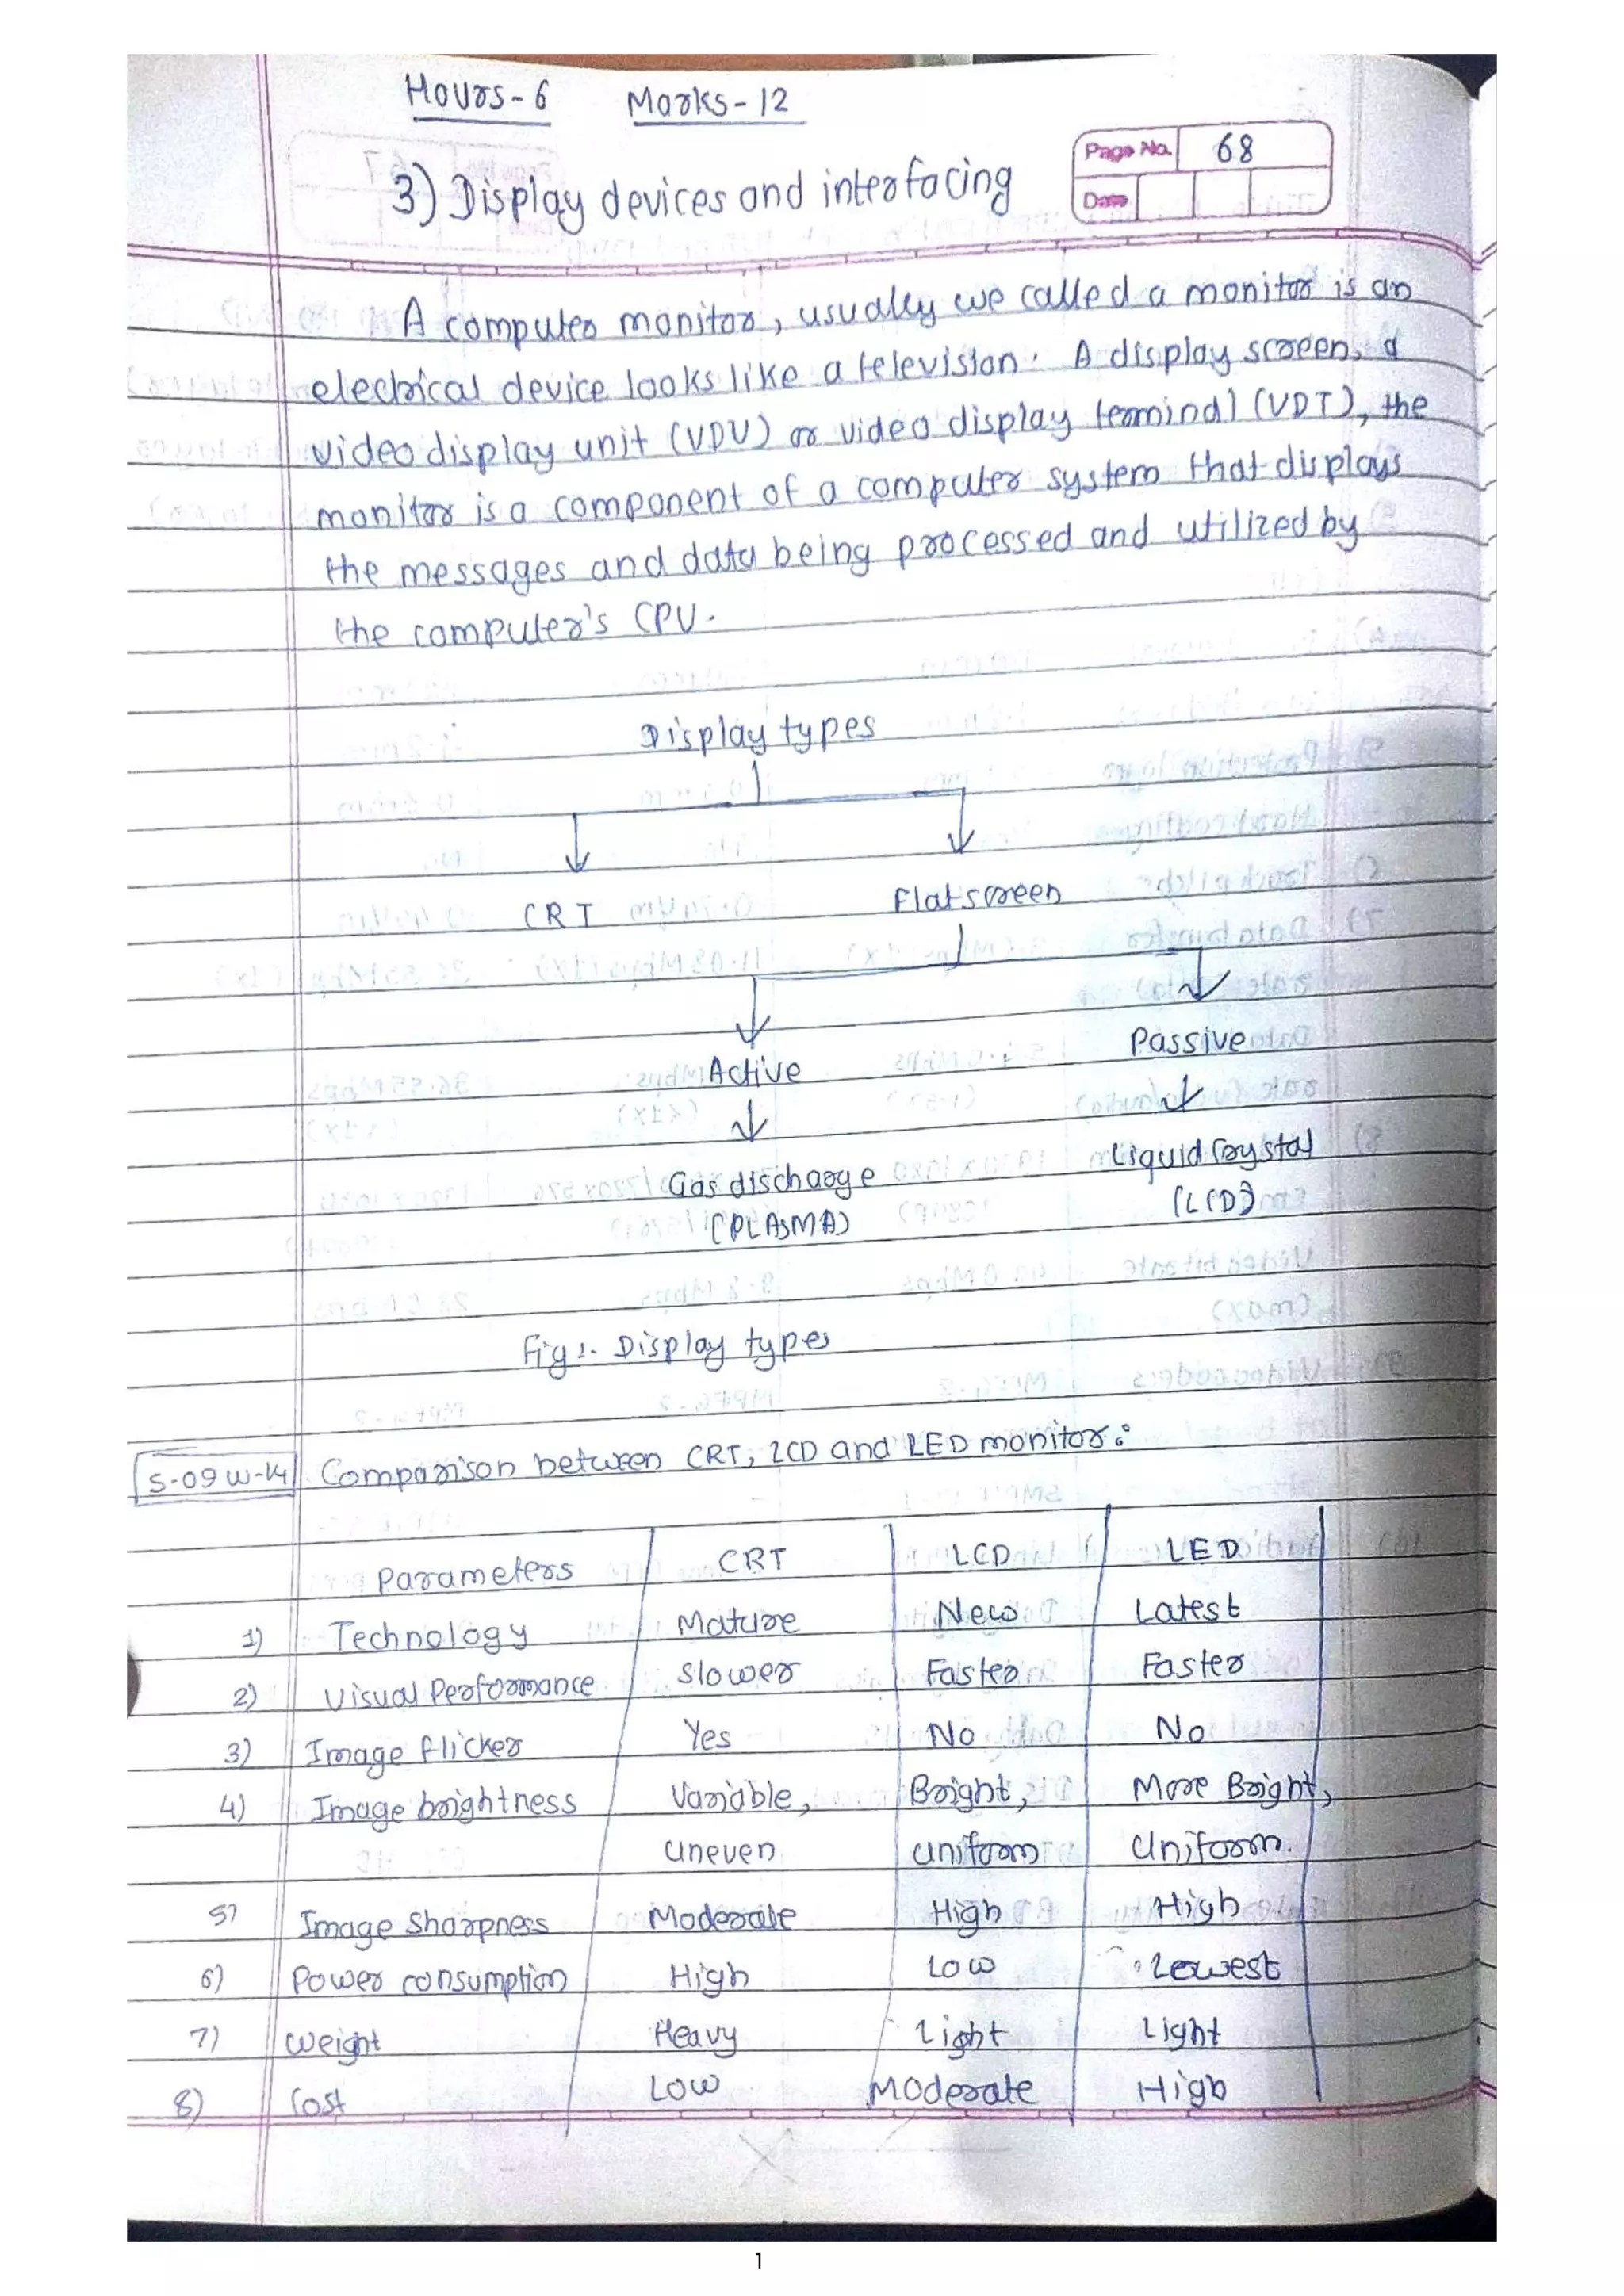 Hours-6 Marks-12
Page No. 68
3) Display devices and interfacing
Date
A computer monitor, usually we called a monitor is an
electrical device looks like a television. A display screen, a
video display unit (VDU) or video display terminal (VDT), the
monitor is a component of a computer system that displays
the messages and data being processed and utilized by
the computer's CPU.
Display types
CRT Flat screen
Active Passive
Gas discharge Liquid Crystal
(PLASMA) (LCD)
Fig:- Display types
S-09 W-14 Comparison between CRT, LCD and LED monitor:
Parameters CRT LCD LED
1) Technology Mature New Latest
2) Visual Performance Slower Faster Faster
3) Image flicker Yes No No
4) Image brightness Variable, Bright, More Bright,
uneven uniform Uniform.
5) Image Sharpness Moderate High High
6) Power consumption High Low Lowest
7) Weight Heavy Light Light
8) Cost Low Moderate High
1